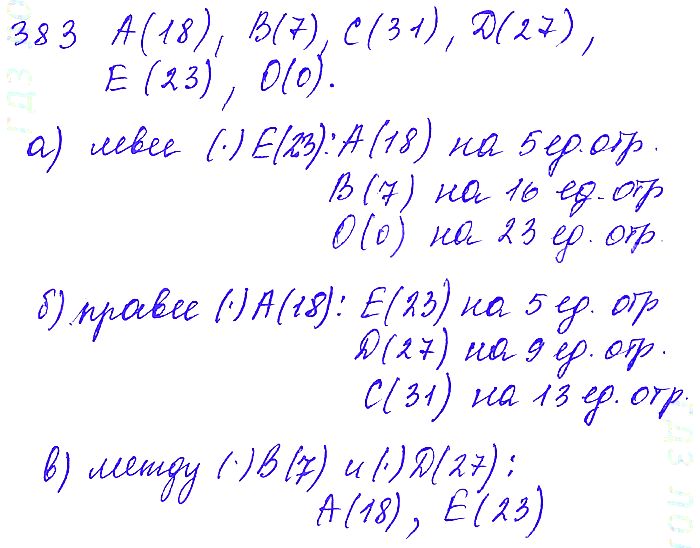 383 A(18), B(7), C(31), D(27),
E(23), O(0).
а) левее (·) E(23): A(18) на 5 ед. отр.
B(7) на 16 ед. отр
O(0) на 23 ед. отр.
б) правее (·) A(18): E(23) на 5 ед. отр
D(27) на 9 ед. отр.
C(31) на 13 ед. отр.
в) между (·) B(7) и (·) D(27):
A(18), E(23)